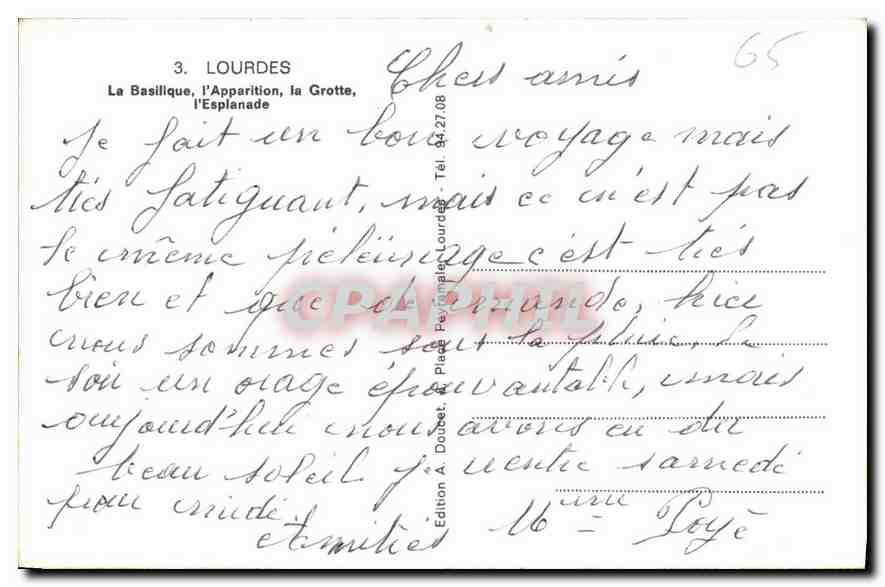 65
3. LOURDES
La Basilique, l'Apparition, la Grotte,
l'Esplanade
Chers amis
Je fait un bon voyage mais
très fatiguant, mais ce n'est pas
le même pélérinage c'est très
bien et que de monde, hier
nous sommes sous la pluie, le
soir un orage épouvantable, mais
aujourd'hui nous avons eu du
beau soleil je rentre samedi
pour midi
Amitiés Mme Poyè
Edition A. Doucet, Place Peyramale, Lourdes - Tél. 94.27.08
CPAPHIL